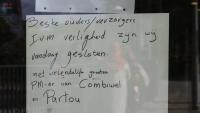 Beste ouders/verzorgers
I.v.m veiligheid zyn wij
vandaag gesloten.
met vriendelijke groeten
PM-er van Combiwel
en Partou